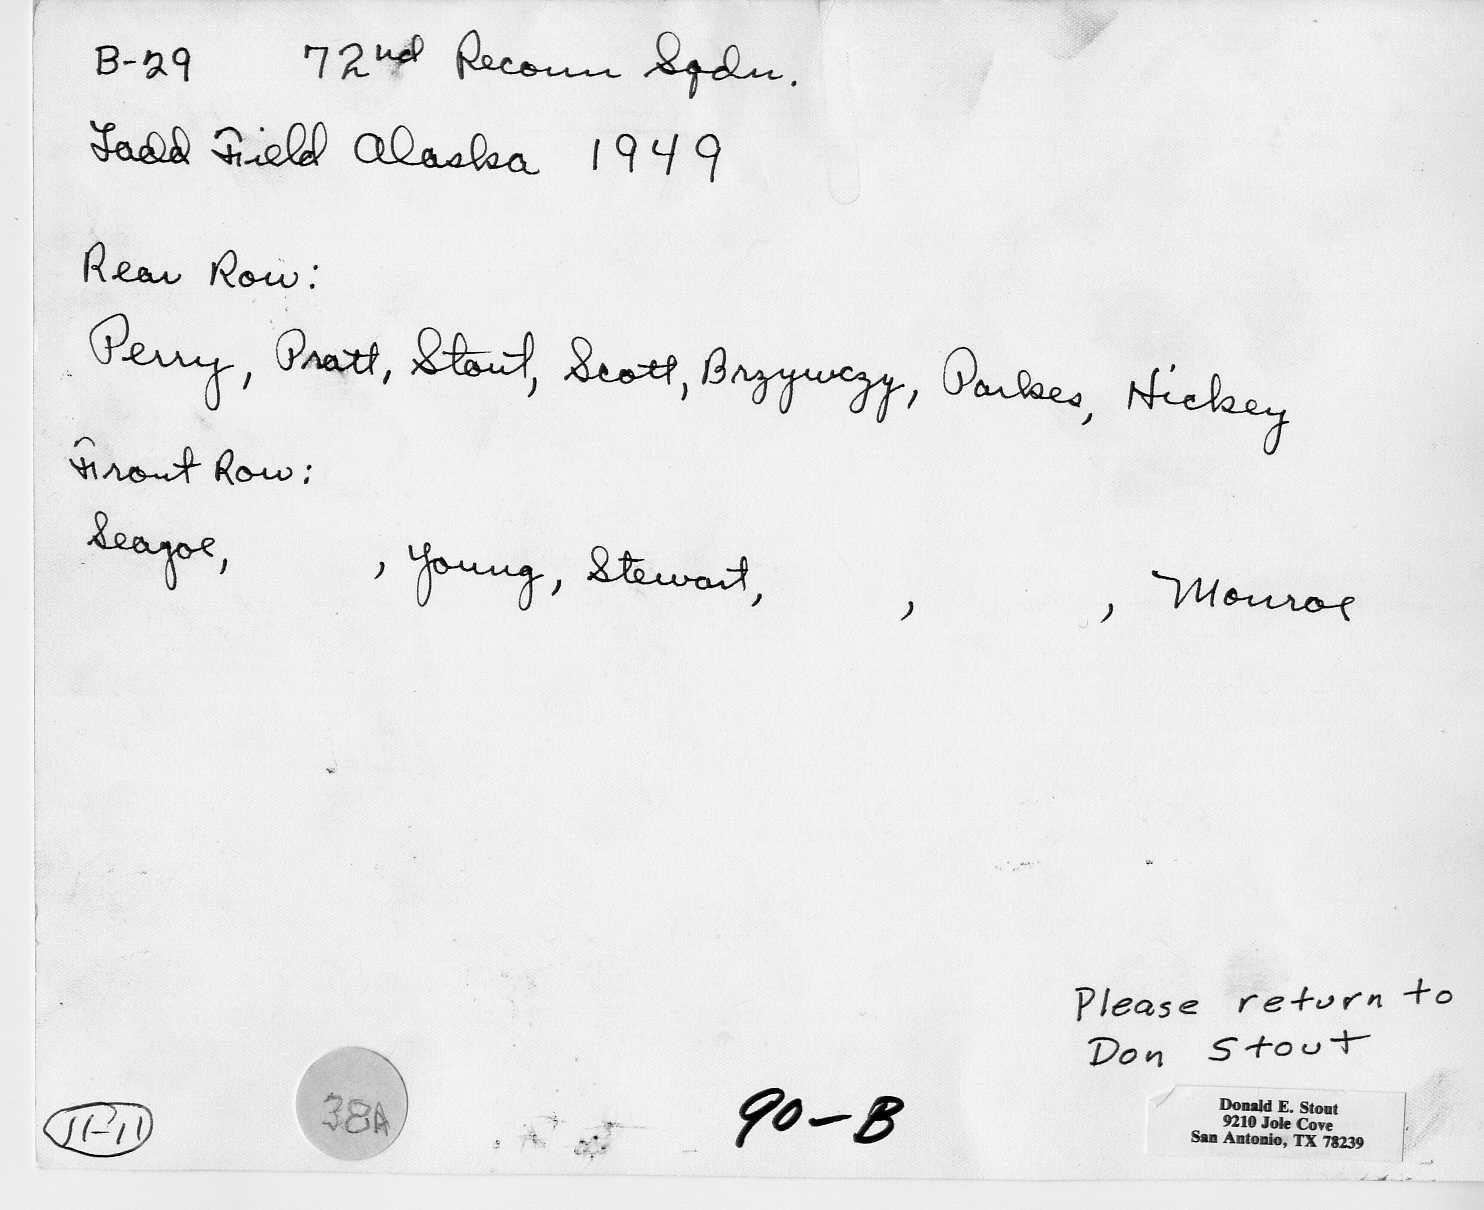 B-29 72nd Reconn Sqdn.
Ladd Field Alaska 1949
Rear Row:
Perry, Pratt, Stout, Scott, Brzywczy, Parkes, Hickey
Front Row:
Seagoe, , Young, Stewart, , , Monroe
Please return to
Don Stout
Donald E. Stout
9210 Jole Cove
San Antonio, TX 78239
11-11
38A
90-B